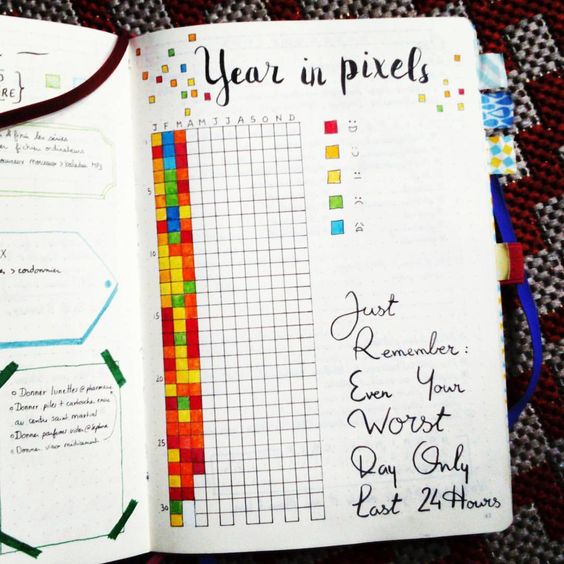 RE}
les séries
fichier ordinateurs
morceaux > balader MP3
X
> cordonnier
o Donner lunettes @pharmacie
o Donner piles + cartouche encre
au centre saint martial
o Donner parfums vides @Sephora
o Donner vieux médicament
Year in pixels
J F M A M J J A S O N D
1
5
10
15
20
25
30
:D
:)
:|
:(
Just
Remember:
Even Your
Worst
Day Only
Last 24 Hours